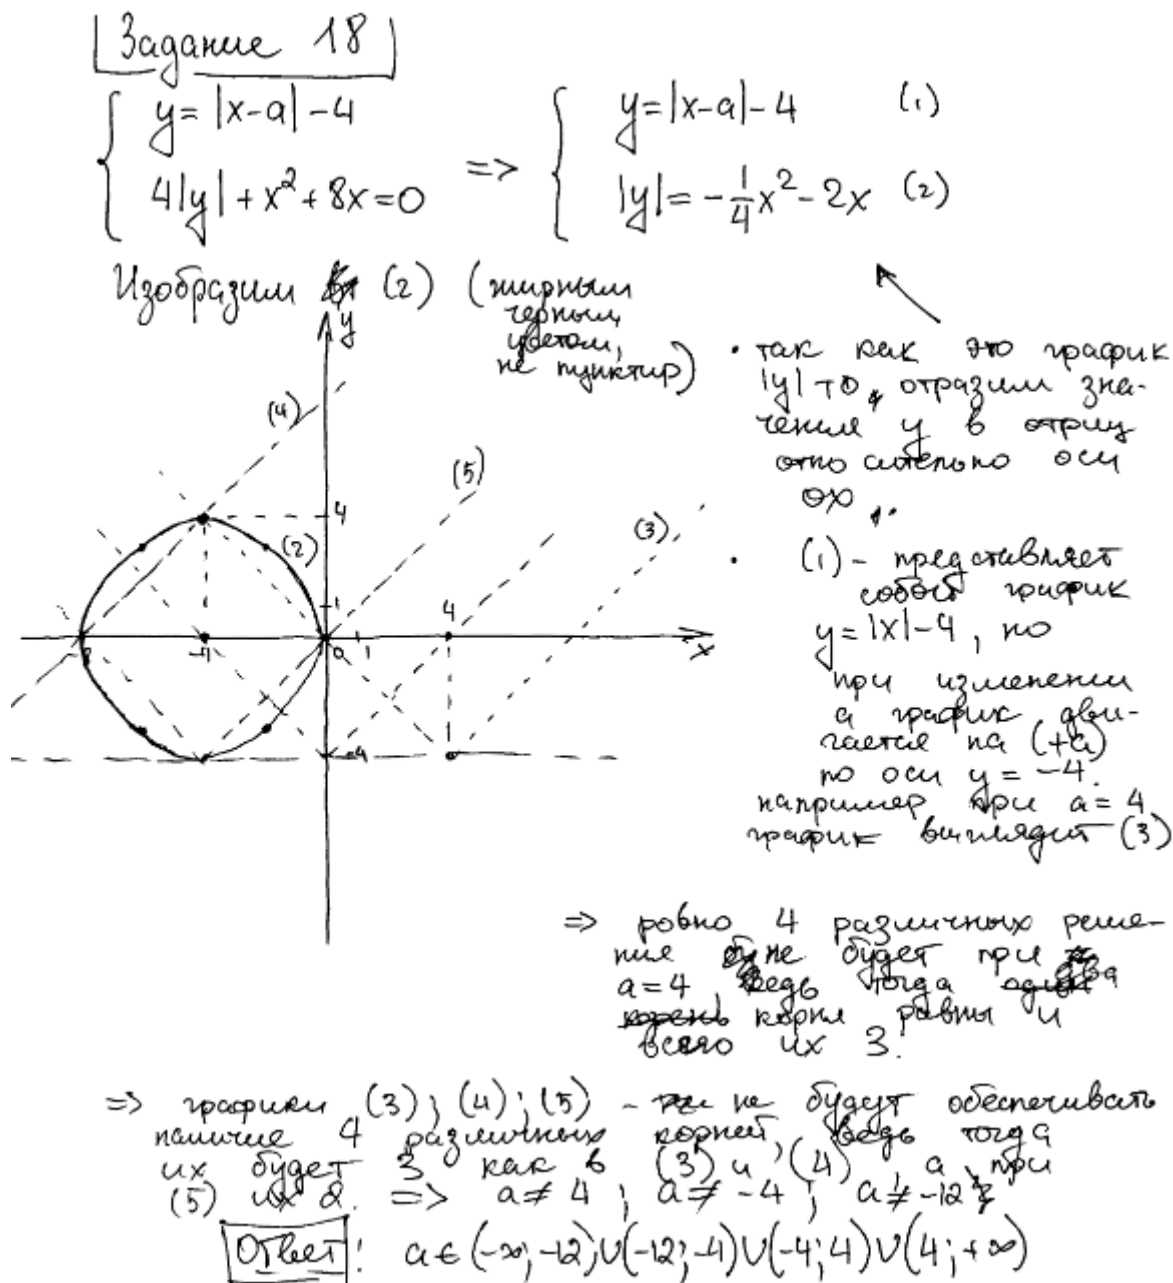 Задание 18
{ y = |x-a| - 4
4|y| + x² + 8x = 0
=>
{ y = |x-a| - 4 (1)
|y| = -1/4 x² - 2x (2)
Изобразим (2) (жирным
черным
цветом,
не пунктир)
y
(4)
(5)
(3)
(2)
4
1
4
-8
-4
0
1
x
-4
• так как это график
|y| то, отразим зна-
чения y в отриц
относительно оси
ox
• (1) - представляет
собой график
y = |x| - 4, но
при изменении
a график дви-
гается на (+a)
по оси y = -4.
например при a = 4
график выглядит (3)
=> ровно 4 различных реше-
ние не будет при
a = 4, ведь тогда два
корня равны и
всего их 3.
=> графики (3); (4); (5) - не будут обеспечивать
наличие 4 различных корней, ведь тогда
их будет 3 как в (3) и (4), а при
(5) их 2. => a ≠ 4; a ≠ -4; a ≠ -12
Ответ: a ∈ (-∞; -12) ∪ (-12; -4) ∪ (-4; 4) ∪ (4; +∞)